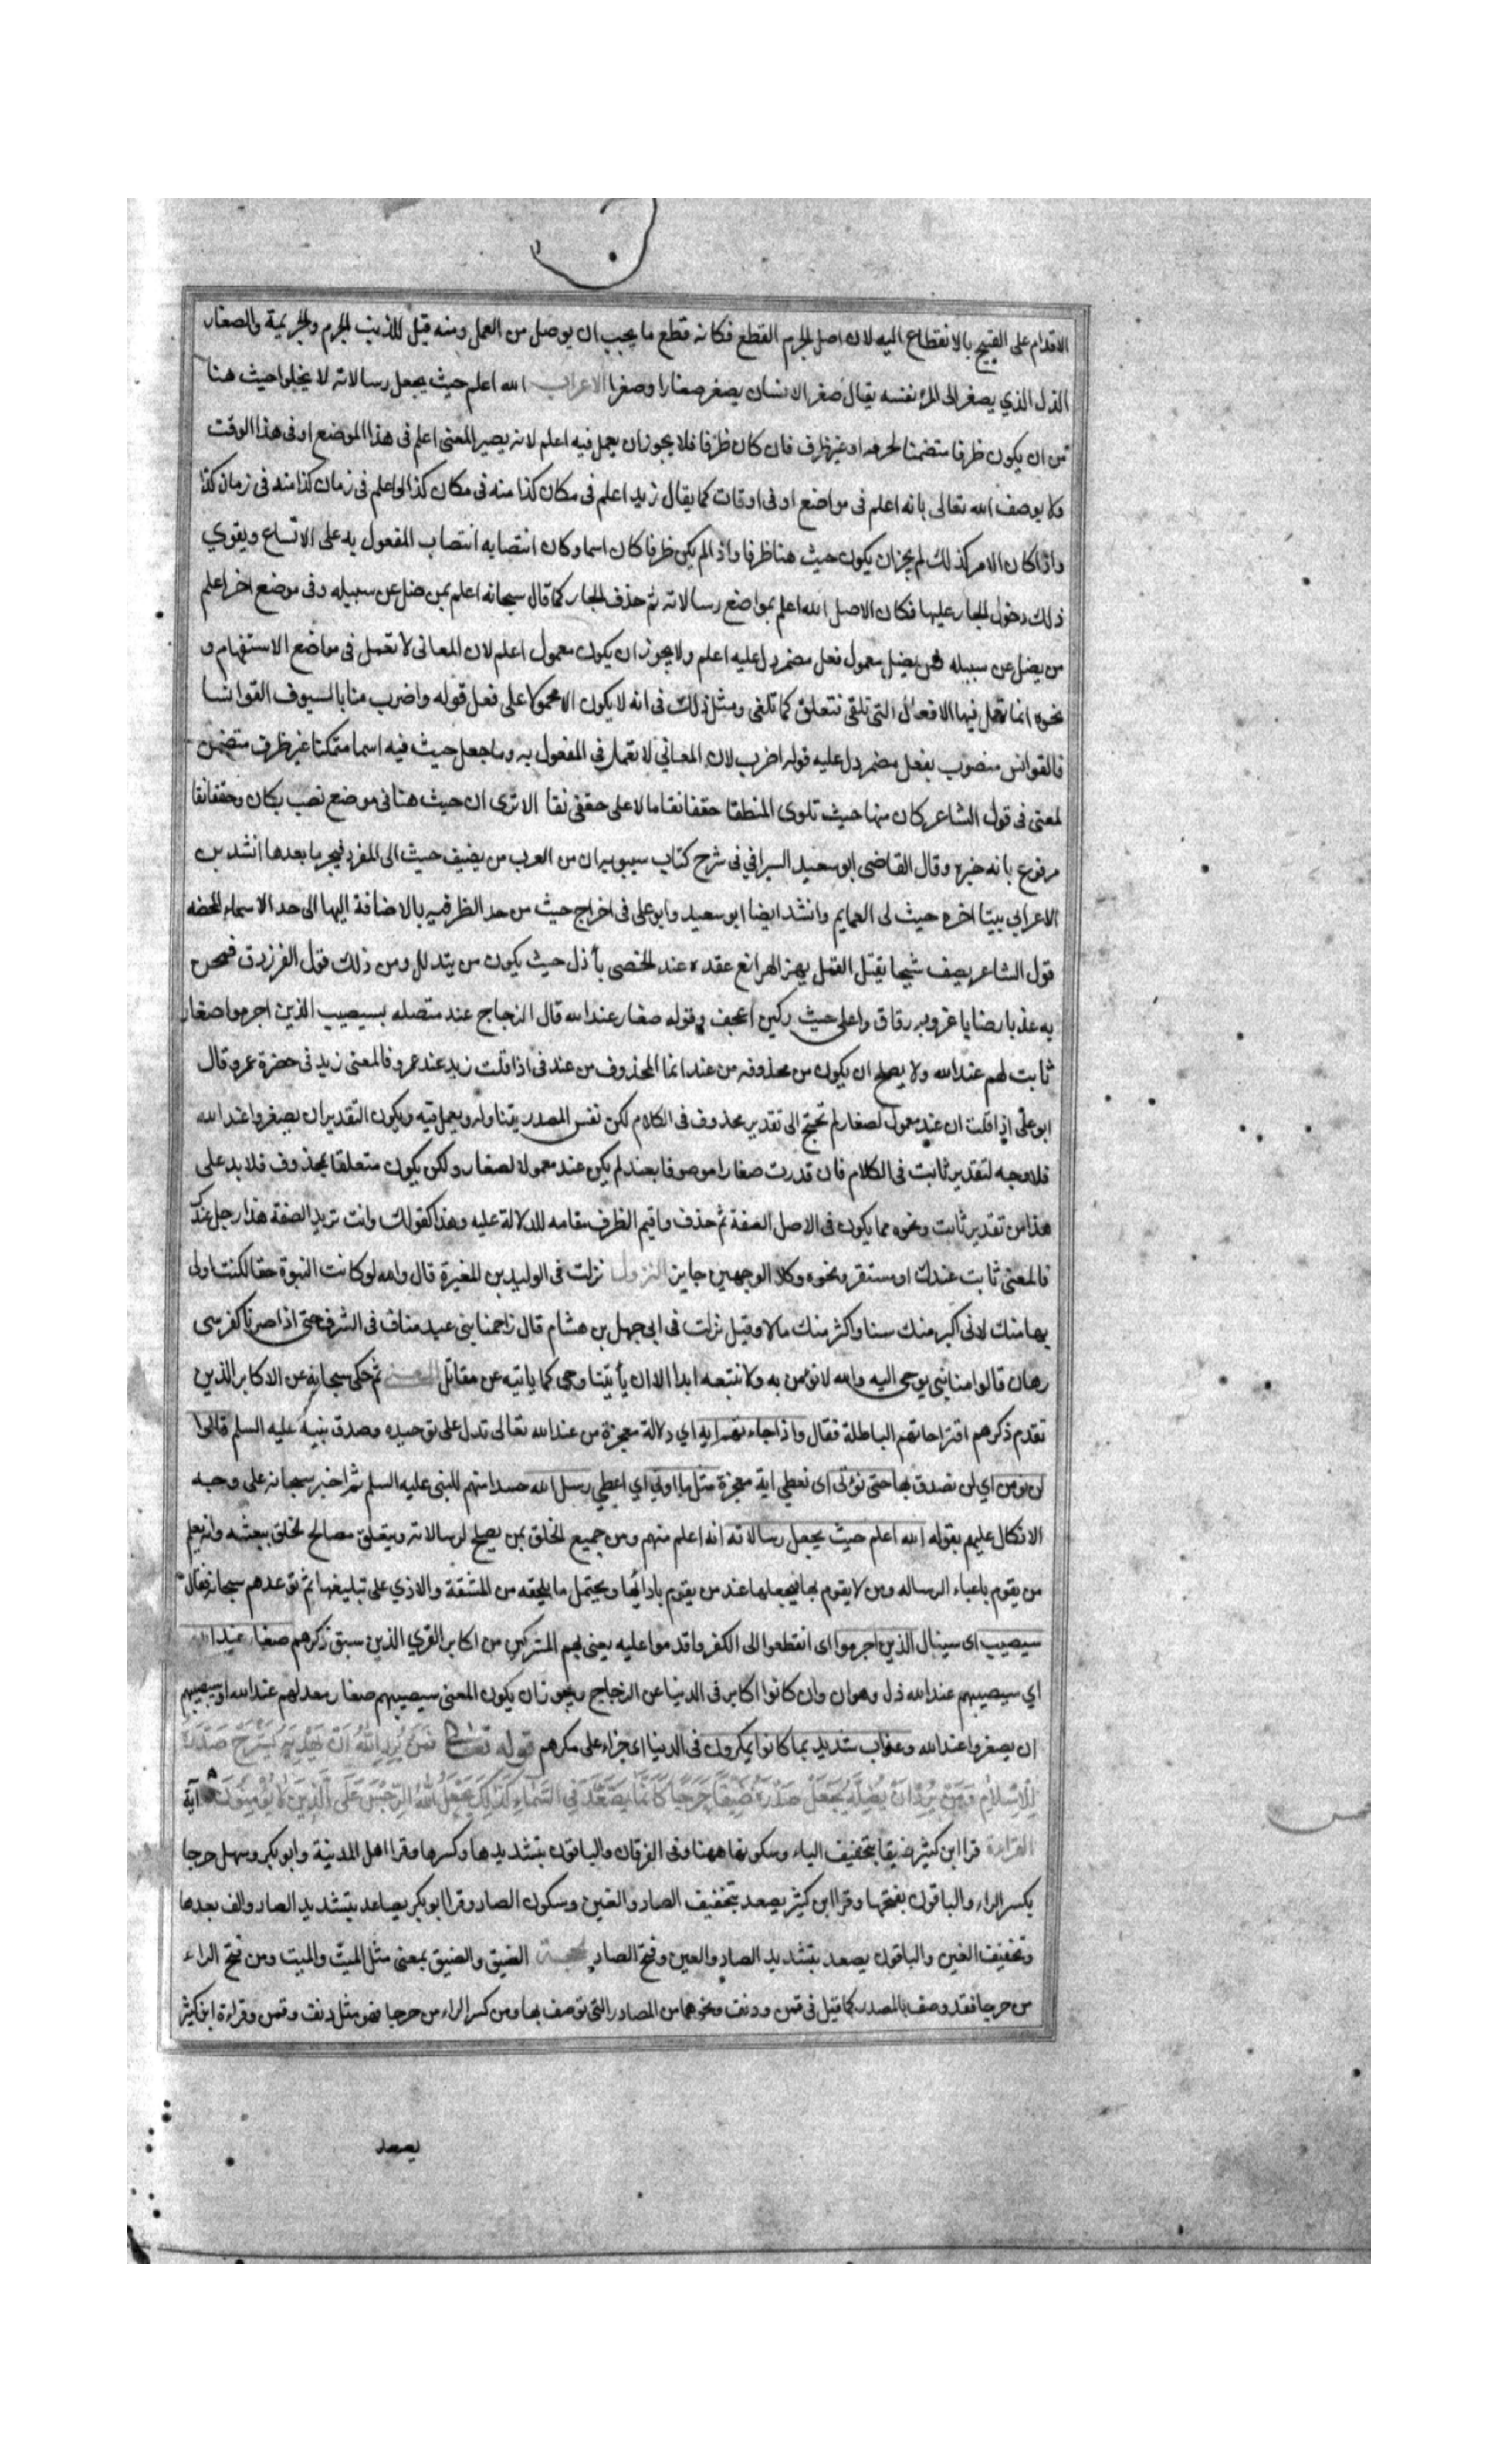 الاقدام على القبيح بالانقطاع اليه لان اصل الجرم القطع فكانه قطع ما يجب ان يوصل من العمل ومنه قيل للذنب الجرم والجريمة والصغار
الذل الذي يصغر الى المرء نفسه يقال صغر الانسان يصغر صغارا وصغرا الاعراب الله اعلم حيث يجعل رسالاته لا يخلوا حيث هنا
من ان يكون ظرفا متضمنا لحرفه او غير ظرف فان كان ظرفا فلا يجوز ان يعمل فيه اعلم لانه يصير المعنى اعلم فى هذا الموضع او فى هذا الوقت
ولا يوصف الله تعالى بانه اعلم فى مواضع او فى اوقات كما يقال زيد اعلم فى مكان كذا منه فى مكان كذا او اعلم فى زمان كذا منه فى زمان كذا
واذا كان الامر كذلك لم يجز ان يكون حيث هنا ظرفا واذا لم يكن ظرفا كان اسما وكان انتصابه انتصاب المفعول به على الاتساع ويقوي
ذلك دخول الجار عليها فكان الاصل الله اعلم بمواضع رسالاته ثم حذف الجار كما قال سبحانه اعلم بمن ضل عن سبيله وفى موضع اخر اعلم
من يضل عن سبيله فمن يضل معمول فعل مضمر دل عليه اعلم ولا يجوز ان يكون معمول اعلم لان المعانى لا تعمل فى مواضع الاستفهام و
نحوه انما تعمل فيها الافعال التى تلقى فتعلق كما تلغى ومثل ذلك فى انه لا يكون الا محمولا على فعل قوله واضرب منا بالسيوف القوانسا
فالقوانس منصوب بفعل مضمر دل عليه قوله اضرب لان المعاني لا تعمل فى المفعول به وما جعل حيث فيه اسما متمكنا غير ظرف متضمن
لمعنى فى قول الشاعر كان منها حيث تلوى المنطقا حقفا نقا مالا على حقفى نقا الا ترى ان حيث هنا فى موضع نصب بكان وحقفا نقا
مرفوع بانه خبره وقال القاضى ابو سعيد السيرافي فى شرح كتاب سيبويه ان من العرب من يضيف حيث الى المفرد فيجر ما بعدها انشد بن
الاعرابي بيتا اخره حيث لى العمايم وانشد ايضا ابو سعيد وابو على فى اخراج حيث من حد الظرفيه بالاضافة اليها الى حد الاسماء المحضه
قول الشاعر يصف شيخا يقتل القمل يهز الهرانع عقده عند الخصى بأذل حيث يكون من يتدلل ومن ذلك قول الفرزدق فمحن
به عذبا رضابا غروبه رقاق واعلى حيث ركبن اعجف وقوله صغار عند الله قال الزجاج عند متصله بسيصيب الذين اجرموا صغار
ثابت لهم عند الله ولا يصلح ان يكون من محذوفه من عند انما المحذوف من عند فى اذا قلت زيد عند عمرو فالمعنى زيد فى حضرة عمرو قال
ابو على اذا قلت ان عند معمول لصغار لم تحتج الى تقدير محذوف فى الكلام لكن نفس المصدر يتناوله ويعمل فيه ويكون التقدير ان يصغروا عند الله
فلا وجه لتقدير ثابت فى الكلام فان قدرت صغارا موصوفا بعند لم يكن عند معمولا لصغار ولكن يكون متعلقا بمحذوف فلا بد على
هذا من تقدير ثابت ونحوه مما يكون فى الاصل الصفة ثم حذف واقيم الظرف مقامه للدلالة عليه وهذا كقولك وانت تريد الصفة هذا رجل عندك
فالمعنى ثابت عندك او مستقر ونحوه وكلا الوجهين جايز النزول نزلت فى الوليد بن المغيرة قال والله لو كانت النبوة حقا لكنت اولى
بها منك لانى اكبر منك سنا واكثر منك مالا وقيل نزلت فى ابى جهل بن هشام قال زاحمنا بنى عبد مناف فى الشرف حتى اذا صرنا كفرسى
رهان قالوا منا نبى يوحى اليه والله لا نومن به ولا نتبعه ابدا الا ان يأتينا وحى كما ياتيه عن مقاتل المعنى ثم حكى سبحانه عن الاكابر الذين
تقدم ذكرهم اقتراحاتهم الباطلة فقال واذا جاءتهم اية اي دلالة معجزة من عند الله تعالى تدل على توحيده وصدق نبيه عليه السلم قالوا
لن نومن اي لن نصدق بها حتى نؤتى اى نعطى اية معجزة مثل ما اوتي اي اعطي رسل الله حسدا منهم للنبى عليه السلم ثم اخبر سبحانه على وجه
الانكار عليهم بقوله الله اعلم حيث يجعل رسالاته انه اعلم منهم ومن جميع الخلق بمن يصلح لرسالاته ويتعلق مصالح الخلق ببعثه وانه يعلم
من يقوم باعباء الرساله ومن لا يقوم بها فيجعلها عند من يقوم بادائها ويحتمل ما يلحقه من المشقة والاذي على تبليغها ثم توعدهم سبحانه فقال
سيصيب اى سينال الذين اجرموا اى انقطعوا الى الكفر واقدموا عليه يعنى بهم المشركين من اكابر القري الذين سبق ذكرهم صغار عند الله
اي سيصيبهم عند الله ذل وهوان وان كانوا اكابر فى الدنيا عن الزجاج ويجوز ان يكون المعنى سيصيبهم صغار معد لهم عند الله او سيصيبهم
ان يصغروا عند الله وعذاب شديد بما كانوا يمكرون فى الدنيا اى جزاء على مكرهم قوله تعالى فَمَن يُرِدِ اللهُ اَنْ يَهْدِيَهُ يَشْرَحْ صَدْرَهُ
لِلْاِسْلَامِ وَمَنْ يُرِدْ اَنْ يُضِلَّهُ يَجْعَلْ صَدْرَهُ ضَيِّقًا حَرَجًا كَاَنَّمَا يَصَّعَّدُ فِى السَّمَاءِ كَذٰلِكَ يَجْعَلُ اللهُ الرِّجْسَ عَلَى الَّذِينَ لَا يُؤْمِنُونَ آية
القراءة قرا ابن كثير ضيقا بتخفيف الياء وسكونها هاهنا وفى الفرقان والباقون بتشديدها وكسرها وقرا اهل المدينة وابو بكر وسهل حرجا
بكسر الراء والباقون بفتحها وقرا ابن كثير يصعد بتخفيف الصاد والعين وسكون الصاد وقرا ابو بكر يصاعد بتشديد الصاد والف بعدها
وتخفيف العين والباقون يصعد بتشديد الصاد والعين وفتح الصاد الحجة الضيق والضيق بمعنى مثل الميت والميت ومن فتح الراء
من حرجا فقد وصف بالمصدر كما قيل فى قمن ودنف ونحوهما من المصادر التى توصف بها ومن كسر الراء من حرجا فهو مثل دنف وقمن وقراءة ابن كثير
يصعد